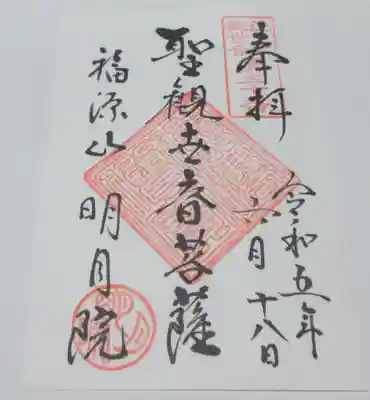 奉拝
令和五年
六月十八日
聖観世音菩薩
福源山明月院